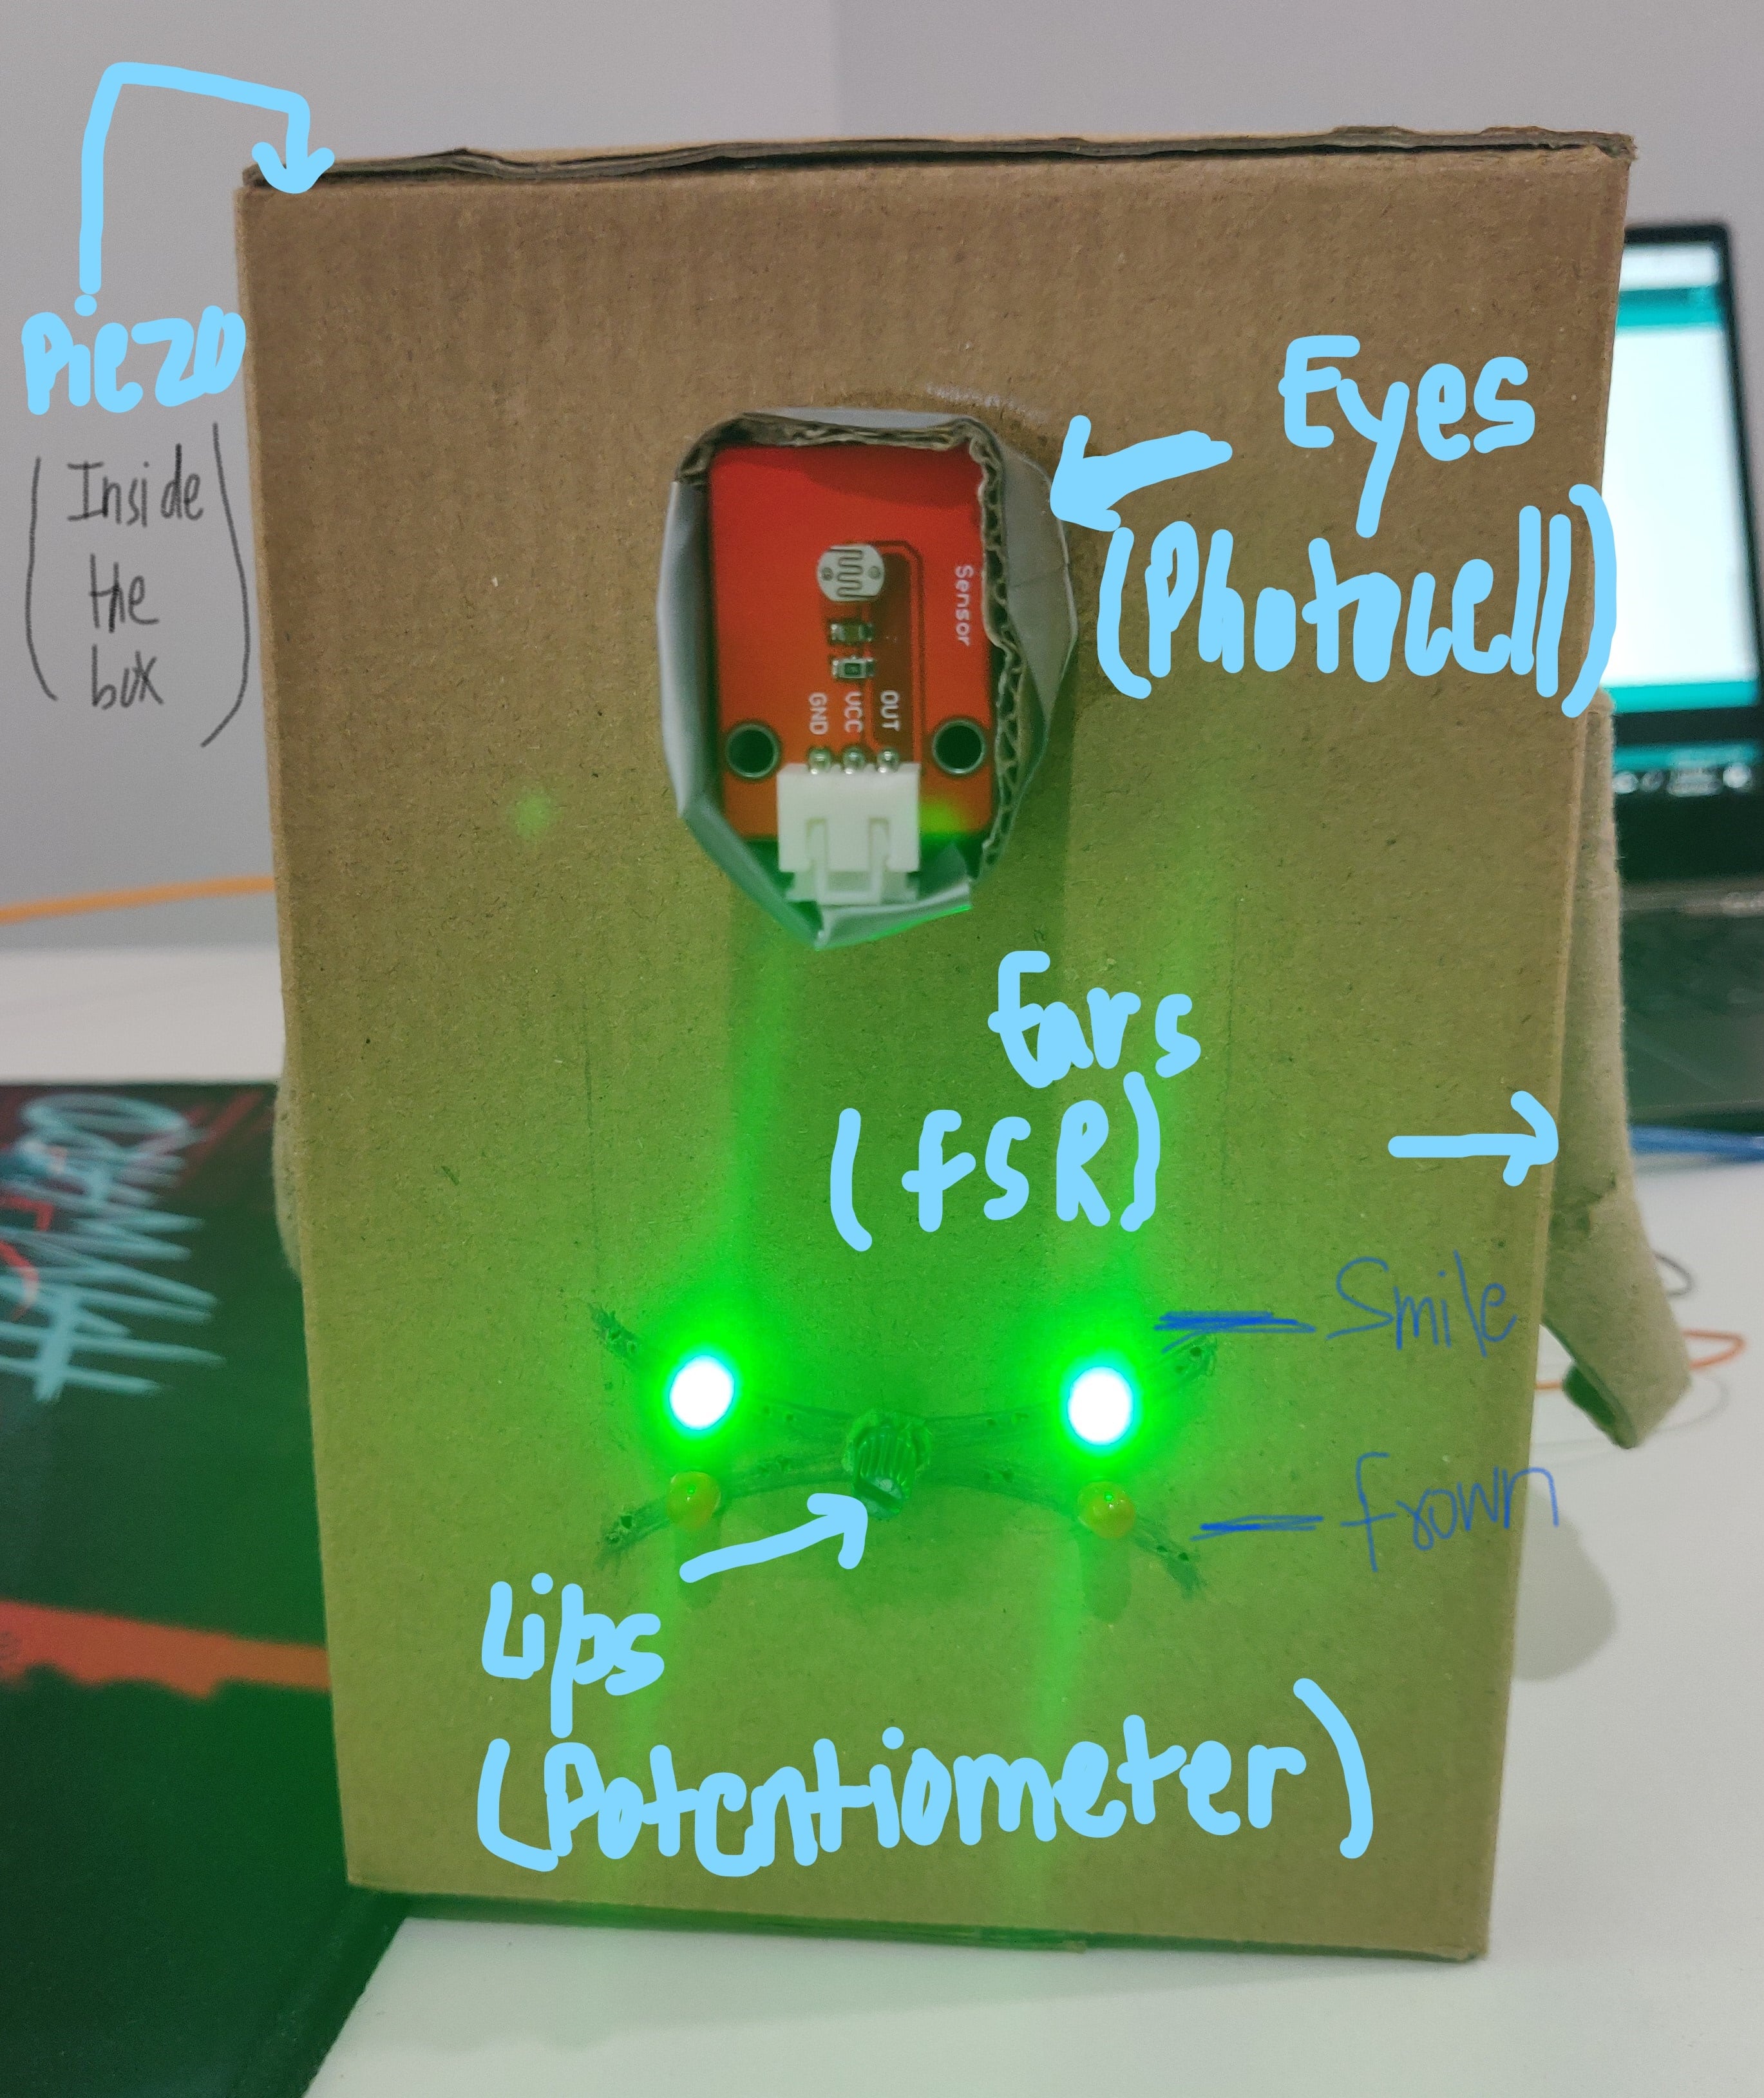 Piezo
(Inside
the
box)
Eyes
(Photocell)
Sensor
GND
VCC
OUT
Ears
(FSR)
Smile
frown
Lips
(Potentiometer)